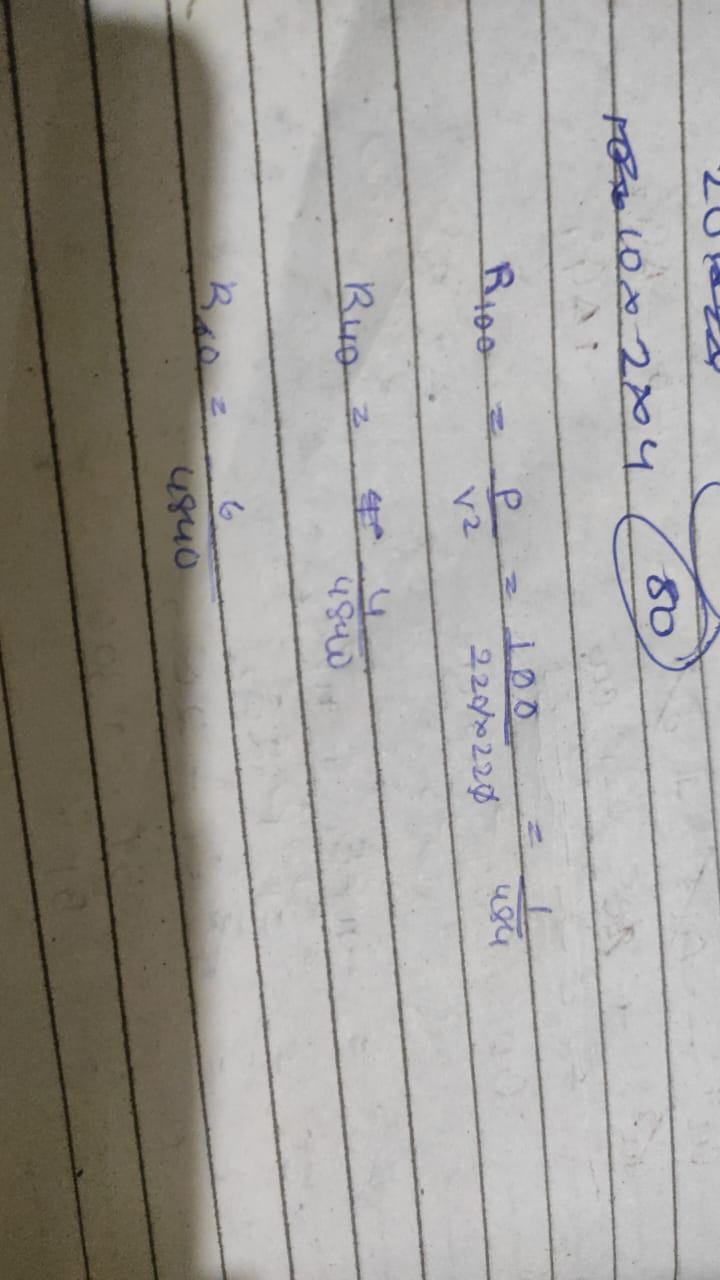 10 × 2 × 4 80
R100 = P/V2 = 100/220×220 = 1/484
R40 = 4/4840
R60 = 6/4840